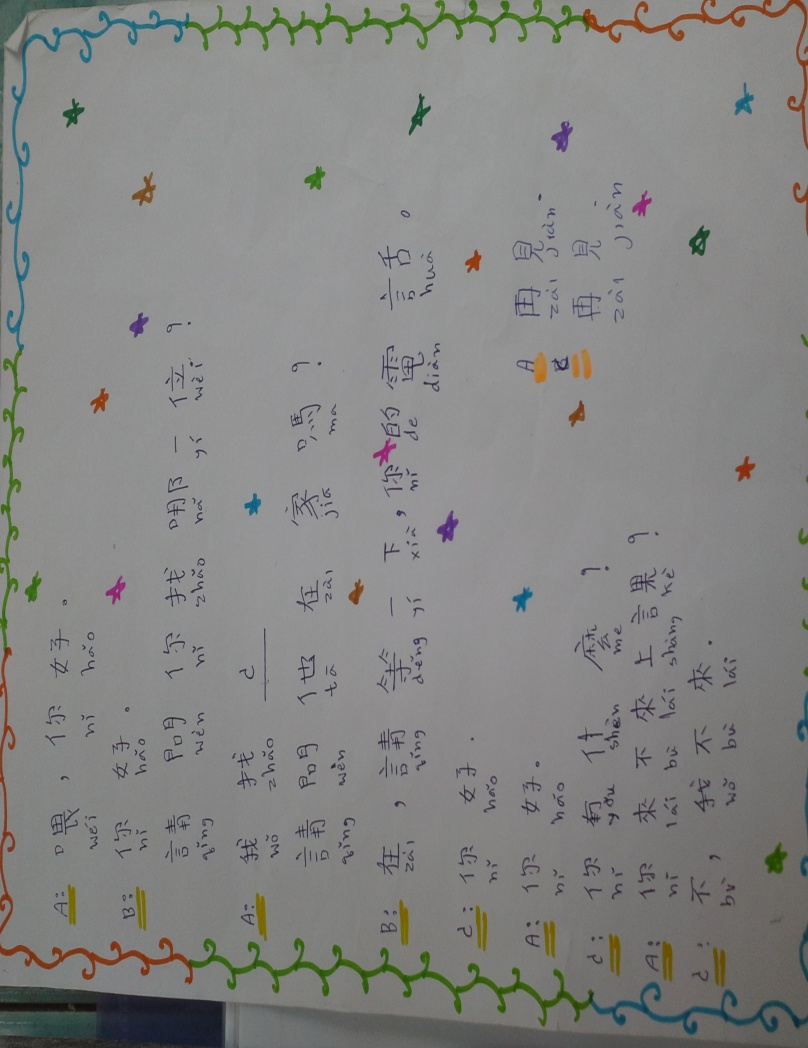 A: 喂，你好。
wéi nǐ hǎo
B: 你好。
nǐ hǎo
請問你找哪一位？
qǐng wèn nǐ zhǎo nǎ yí wèi
A: 我找 C
wǒ zhǎo
請問他在家嗎？
qǐng wèn tā zài jiā ma
B: 在，請等一下，你的電話。
zài qǐng děng yí xià nǐ de diàn huà
C: 你好.
nǐ hǎo
A: 你好。
nǐ hǎo
C: 你有什麼？
nǐ yǒu shén me
A: 你來不來上課？
nǐ lái bù lái shàng kè
C: 不，我不來.
bù wǒ bù lái
A 再見
zài jiàn
B 再見
zài jiàn